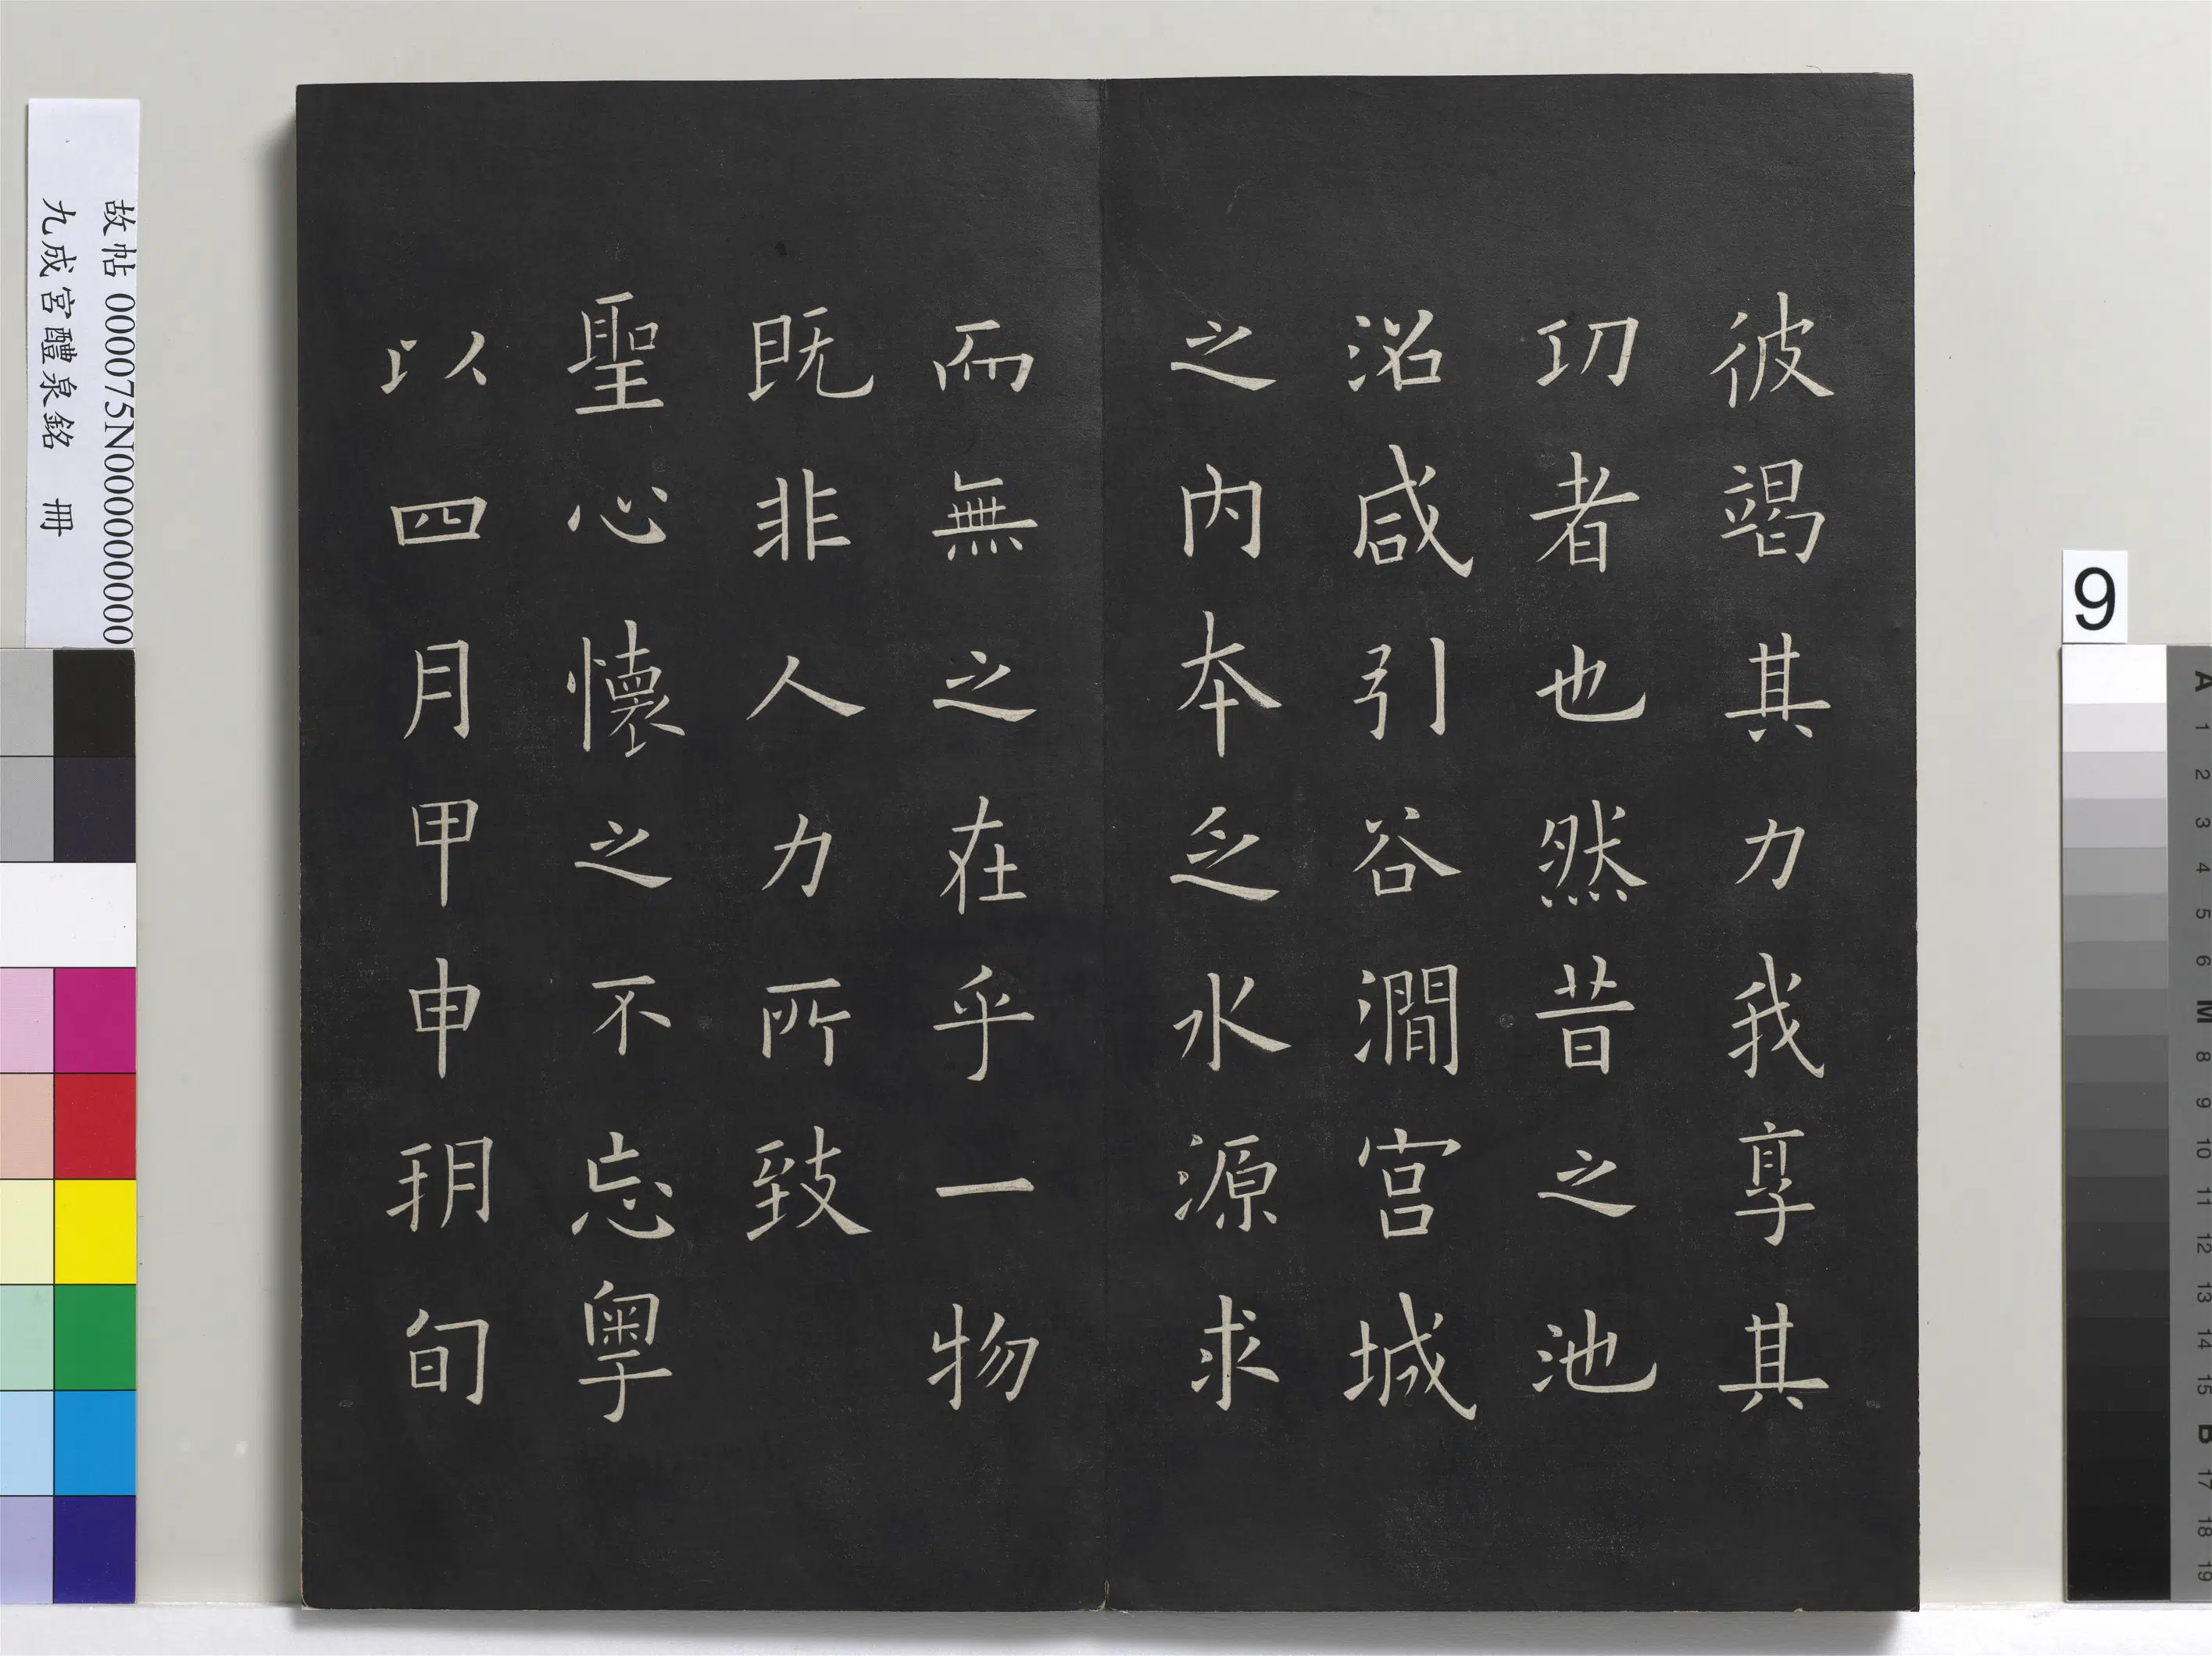 彼竭其力我享其
功者也然昔之池
沼咸引谷澗宮城
之内本乏水源求
而無之在乎一物
既非人力所致
聖心懷之不忘粵
以四月甲申朔旬
故帖 000075N000000000
九成宮醴泉銘 冊
9
A
1
2
3
4
5
6
M
8
9
10
11
12
13
14
15
B
17
18
19